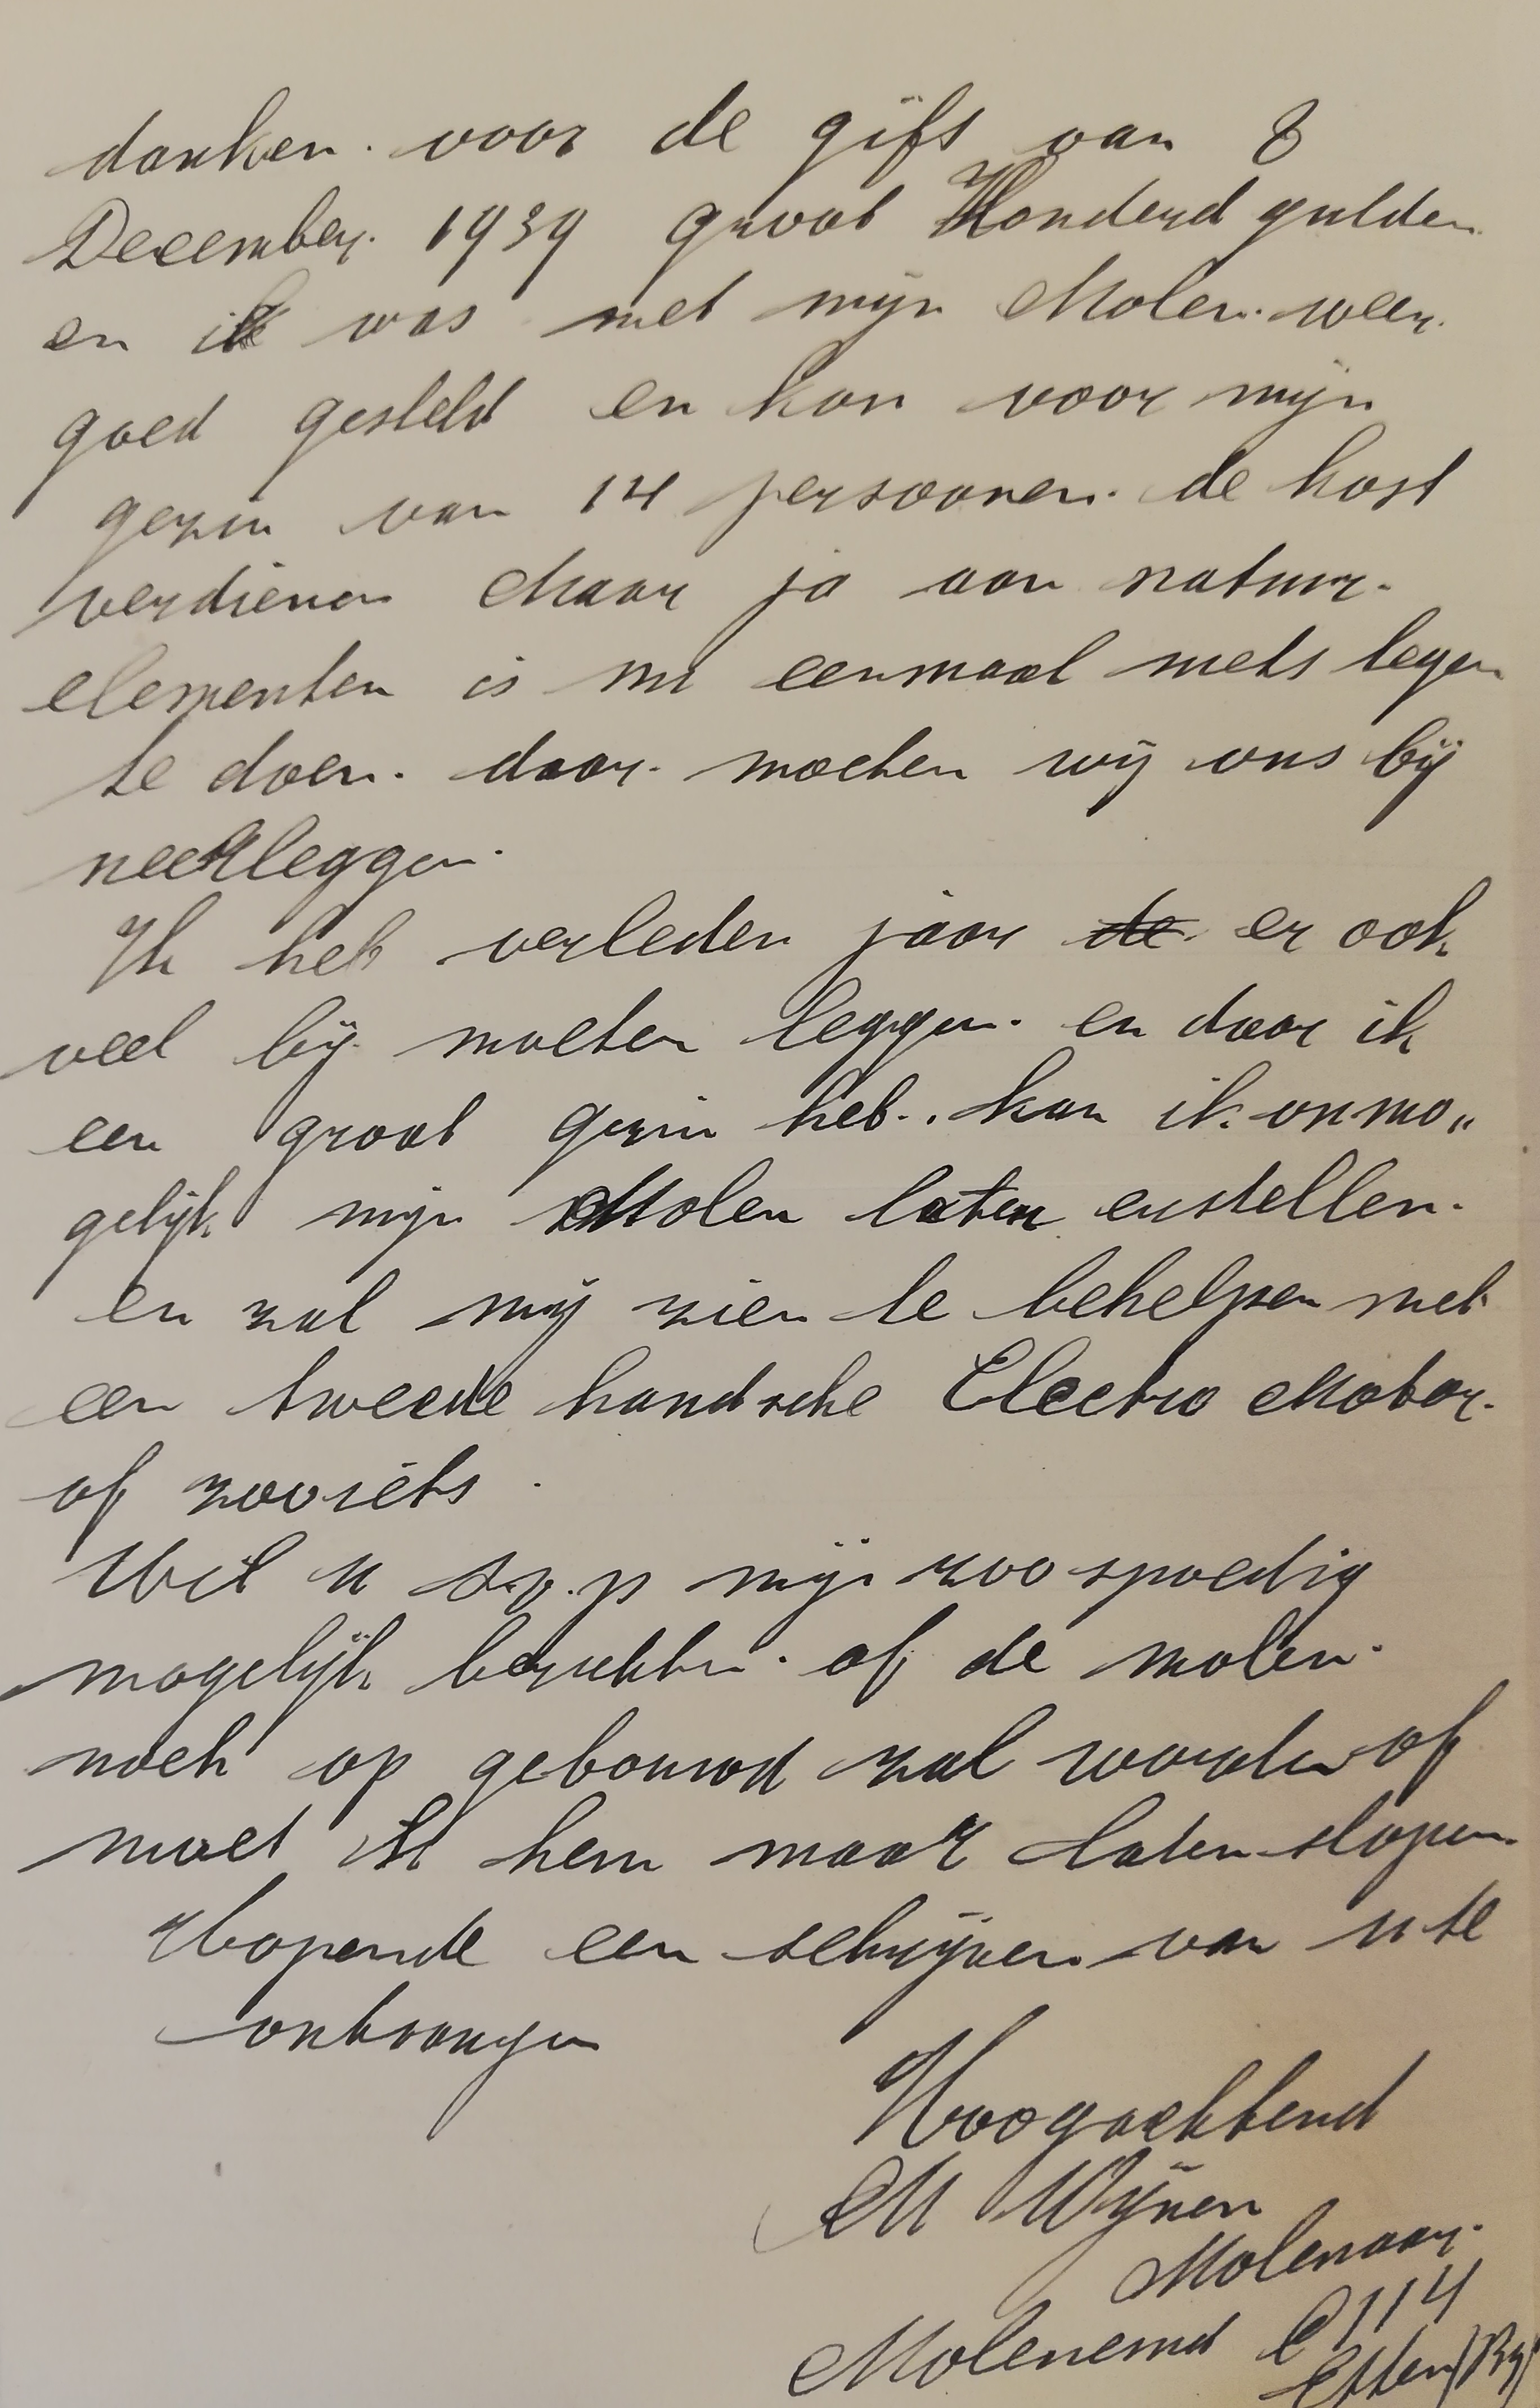 danken. voor de gift van 8
December. 1939 groot Honderd gulden
en ik was met mijn Molen. weer.
goed gesteld en kon voor mijn
gezin van 14 persoonen. de kost
verdienen Maar ja aan natuur-
elementen is nu eenmaal niets tegen
te doen. daar. moeten wij ons bij
neerleggen.
Ik heb verleden jaar de er ook
veel bij moeten leggen. en daar ik
een groot gezin heb.. kan ik onmo„
gelijk mijn Molen laten erstellen.
en zal mij zien te behelpen met
een tweede handsche Electro Motor.
of zooiets.
Wil u s.v.p mij zoo spoedig
mogelijk berichten. of de molen.
noch op gebouwd zal worden of
moet ik hem maar laten slopen.
Hopende een schrijven van u te
ontvangen
Hoogachtend
M Wijnen
Molenaar.
Moleneind C 114
Etten